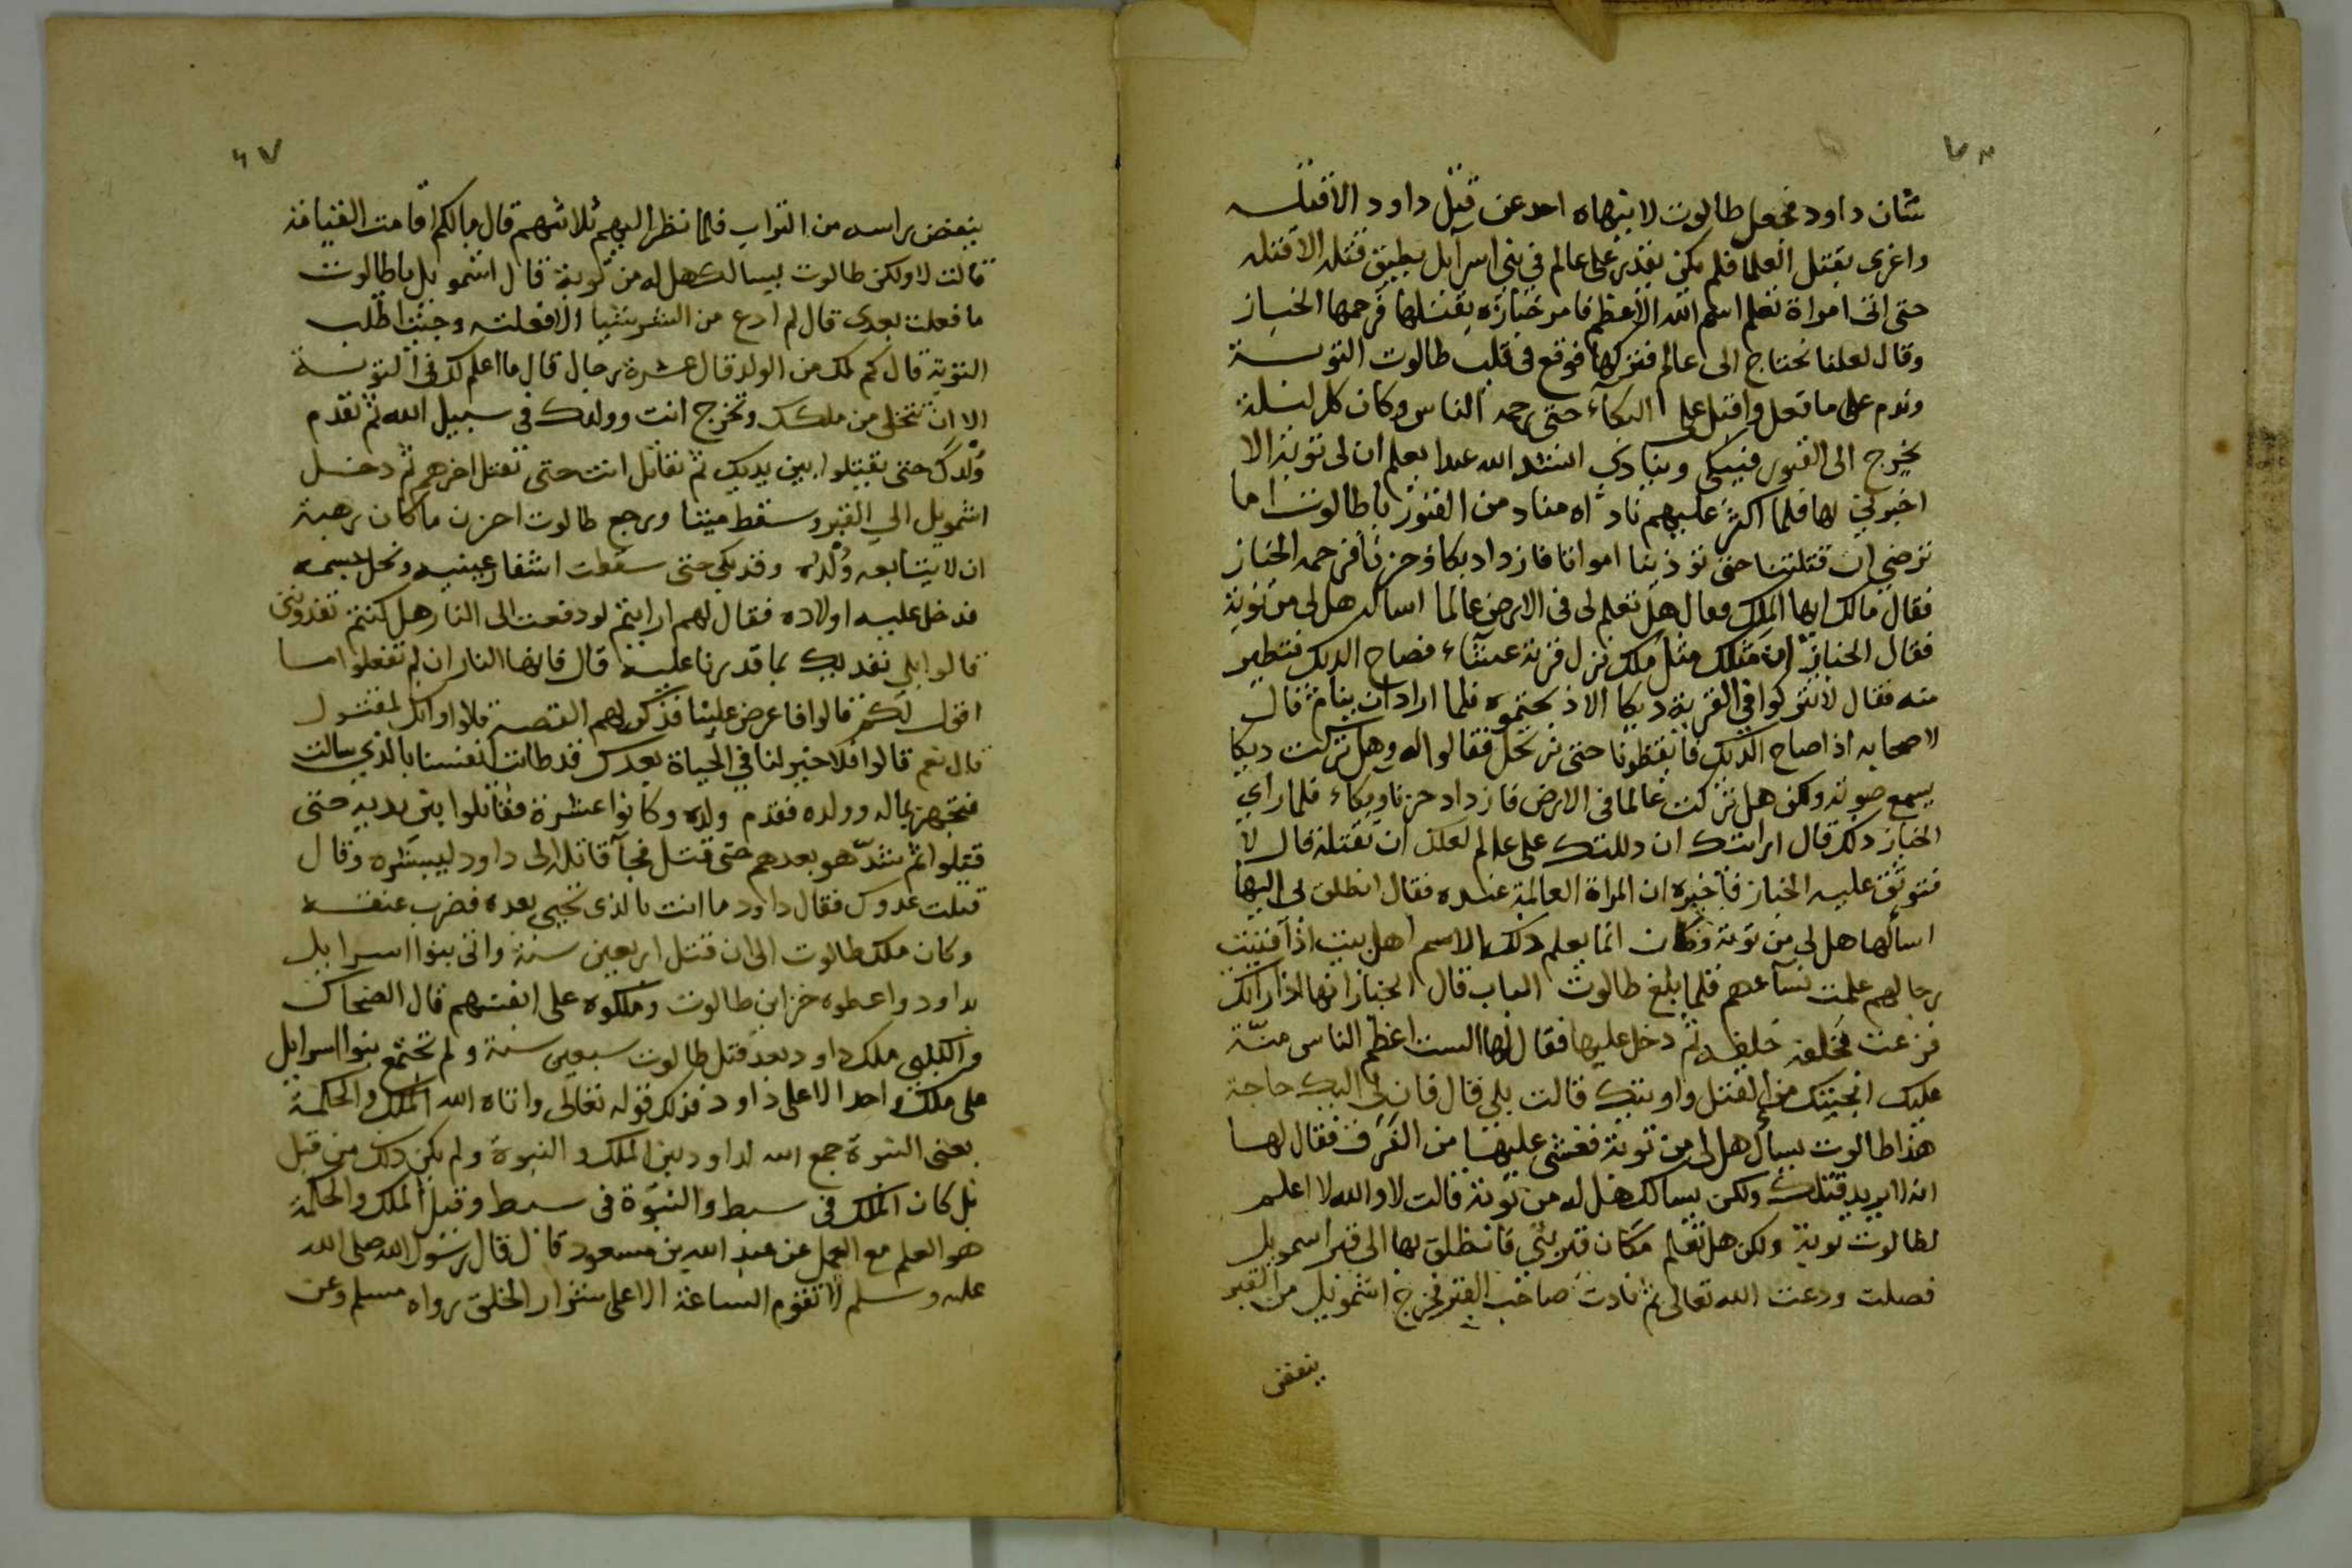 شان داود فجعل طالوت لا ينهاه احد عن قتل داود الا قتله
واغرى بقتل العلما فلم يكن يقدر على عالم في بني اسرآيل يطيق قتله الا قتله
حتى اتى امراة تعلم اسم الله الاعظم فامر خبازه بقتلها فرحمها الخباز
وقال لعلنا نحتاج الى عالم فتركها فوقع في قلب طالوت التوبة
وندم على ما فعل واقبل على البكاء حتى رحمه الناس وكان كل ليلة
يخرج الى القبور فيبكي وينادي انشد الله عبدا يعلم ان لي توبة الا
اخبرني بها فلما اكثر عليهم ناداه مناد من القبور يا طالوت اما
ترضى ان قتلتنا حتى توذينا امواتا فازداد بكاء وحزنا فرحمه الخباز
فقال مالك ايها الملك فقال هل تعلم لي في الارض عالما اساله هل لي من توبة
فقال الخباز ان مثلك مثل ملك نزل قرية عشاء فصاح الديك فتطير
منه فقال لا تتركوا في القرية ديكا الا ذبحتموه فلما اراد ان ينام قال
لاصحابه اذا صاح الديك فايقظونا حتى نرتحل فقالوا له وهل تركت ديكا
يسمع صوته ولكن هل تركت عالما في الارض فازداد حزنا وبكاء فلما راى
الخباز ذلك قال ارايتك ان دللتك على عالم لعلك ان تقتله قال لا
فتوثق عليه الخباز فاخبره ان المراة العالمة عنده فقال انطلق بي اليها
اسالها هل لي من توبة وكان انما يعلم ذلك الاسم اهل بيت اذا فنيت
رجالهم علمت نسآءهم فلما بلغ طالوت الباب قال الخباز انها اذا راتك
فزعت فخلفه خلفه ثم دخل عليها فقال لها الست اعظم الناس منّة
عليك انجيتك من القتل واويتك قالت بلى قال فان لي اليك حاجة
هذا طالوت يسأل هل لي من توبة فغشي عليها من الفَرَق فقال لها
انه لا يريد قتلك ولكن يسالك هل له من توبة قالت لا والله لا اعلم
لطالوت توبة ولكن هل تعلم مكان قبر نبي فانطلق بها الى قبر اشمويل
فصلت ودعت الله تعالى ثم نادت صاحب القبر فخرج اشمويل من القبر
ينفض
٦٧
ينفض راسه من التراب فلما نظر اليهم ثلاثتهم قال مالكم اقامت القيامة
قالت لا ولكن طالوت يسالك هل له من توبة قال اشمويل يا طالوت
ما فعلت بعدي قال لم ادع من الشر شيا الا فعلته وجيت اطلب
التوبة قال كم لك من الولد قال عشرة رجال قال ما اعلم لك في التوبة
الا ان تتخلى من ملكك وتخرج انت وولدك في سبيل الله ثم تقدم
وُلدك حتى يقتلوا بين يديك ثم تقاتل انت حتى تقتل اخرهم ثم دخل
اشمويل الى القبر وسقط ميتا ورجع طالوت احزن ما كان رهبة
ان لا يتابعه وُلْده وقد بكى حتى سقطت اشفار عينيه ونحل جسمه
فدخل عليه اولاده فقال لهم ارايتم لو دفعت الى النار هل كنتم تفدونني
قالوا بلى نفديك بما قدرنا عليه قال فانها النار ان لم تفعلوا ما
اقول لكم قالوا فاعرض علينا فذكر لهم القصة قالوا وانك لمقتول
قال نعم قالوا فلا خير لنا في الحياة بعدك قد طابت انفسنا بالذي سالت
فتجهز بماله وولده فقدم ولده وكانوا عشرة فقاتلوا بين يديه حتى
قتلوا ثم شدّ هو بعدهم حتى قتل فجآ قاتله الى داود ليبشره وقال
قتلت عدوك فقال داود ما انت بالذي تحيى بعده فضرب عنقه
وكان ملك طالوت الى ان قتل اربعين سنة واتى بنوا اسرايل
بداود واعطوه خزاين طالوت وملكوه على انفسهم قال الضحاك
والكلبي ملك داود بعد قتل طالوت سبعين سنة ولم تجتمع بنوا اسرايل
على ملك واحد الا على داود فذلك قوله تعالى واتاه الله الملك والحكمة
يعني النبوة جمع الله لداود بين الملك والنبوة ولم يكن ذلك من قبل
بل كان الملك في سبط والنبوة في سبط وقيل الملك والحكمة
هو العلم مع العمل عن عبد الله بن مسعود قال قال رسول الله صلى الله
عليه وسلم لا تقوم الساعة الا على شرار الخلق رواه مسلم وعن